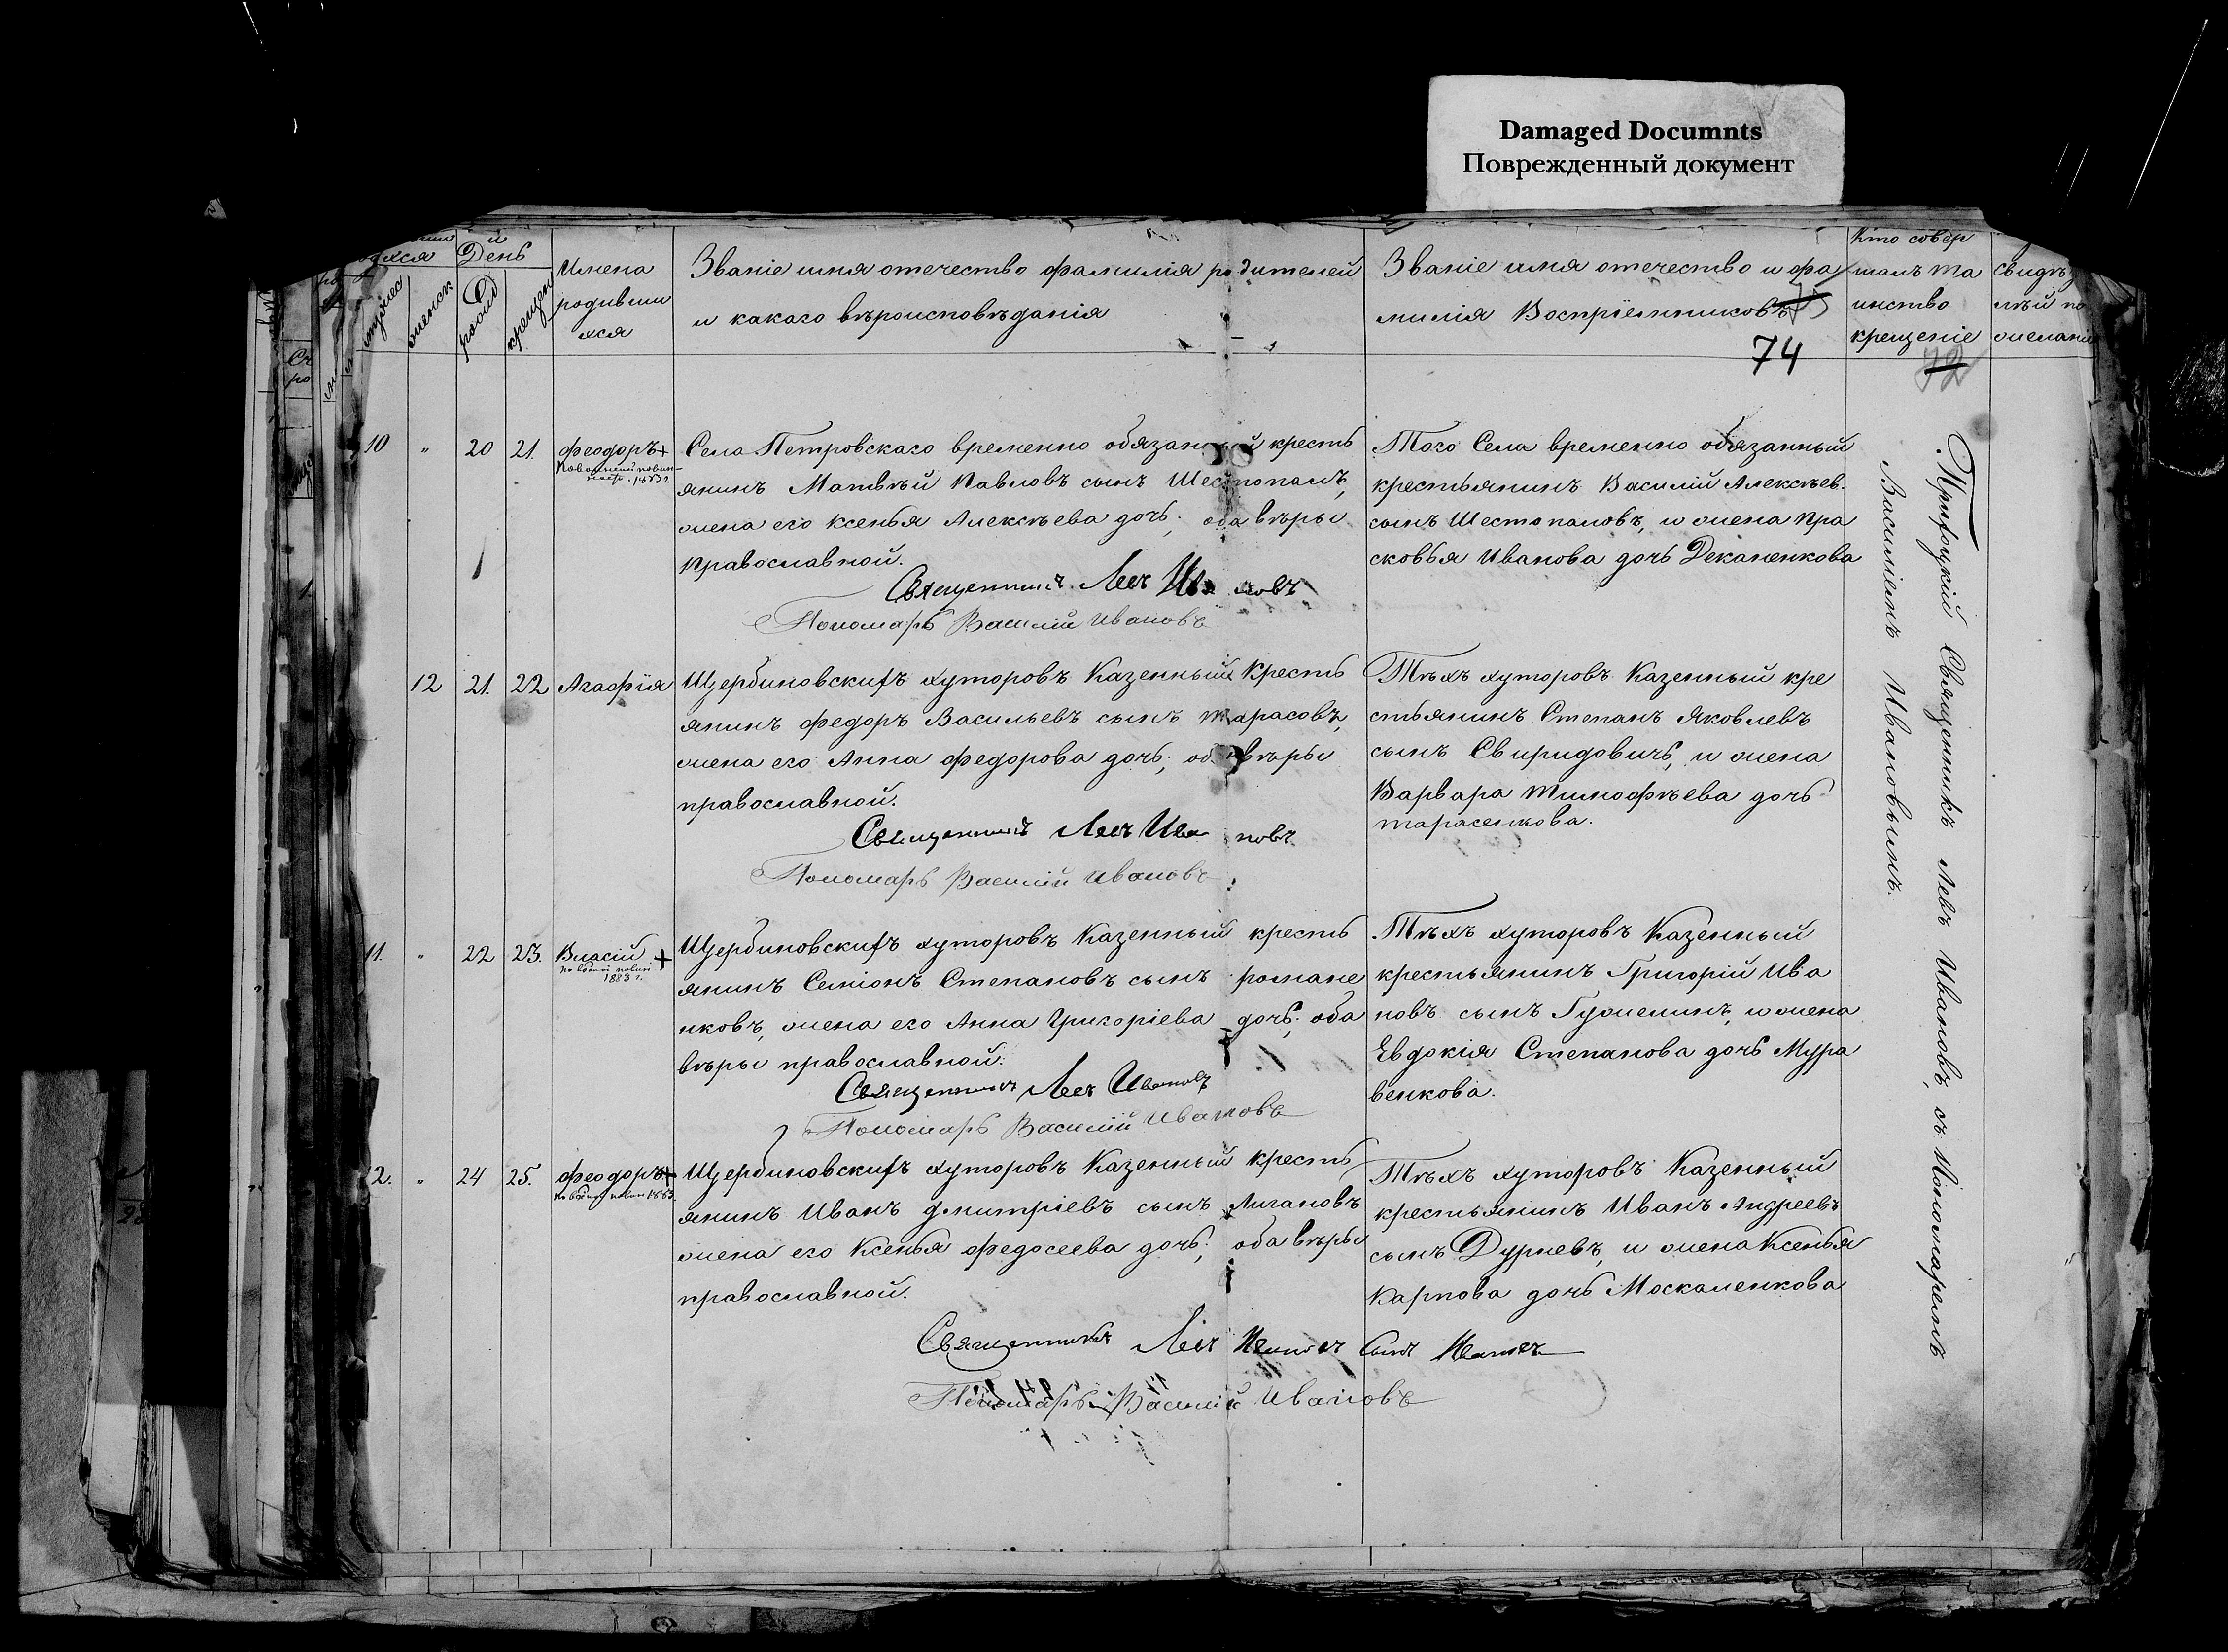 Damaged Documnts
Поврежденный документ
День
Имена
родивши
хся
мужес
женск
рожд
крещен
Званіе имя отечество фамилія родителей
и какаго вѣроисповѣданія
Званіе имя отечество и фа
милія Воспріемниковъ
74
Кто совер
шалъ та
инство
крещеніе
72
свидѣ
лѣй по
желанію
10 " 20 21. Феодоръ +
1883 г.
Села Петровскаго временно обязанный кресть
янинъ Матвѣй Павловъ сынъ Шестопалъ,
жена его Ксенья Алексѣева дочь; оба вѣры
православной.
Священникъ Левъ Ивановъ
Пономарь Василій Ивановъ
Того Села временно обязанный
крестьянинъ Василій Алексѣев.
сынъ Шестопаловъ, и жена Пра
сковья Иванова дочь Деканенкова
12 21. 22 Агафія
Щербиновскихъ хуторовъ Казенный Кресть
янинъ Федоръ Васильевъ сынъ Тарасовъ,
жена его Анна Федорова дочь; оба вѣры
православной.
Священникъ Левъ Ивановъ
Пономарь Василій Ивановъ
Тѣхъ хуторовъ Казенный кре
стьянинъ Степанъ Яковлевъ
сынъ Свиридовичь, и жена
Варвара Тимофѣева дочь
Тарасенкова.
11. " 22 23. Власій +
1883 г.
Щербиновскихъ хуторовъ Казенный кресть
янинъ Семіонъ Степановъ сынъ романе
нковъ, жена его Анна Григоріева дочь; оба
вѣры православной.
Священникъ Левъ Ивановъ
Пономарь Василій Ивановъ
Тѣхъ хуторовъ Казенный
крестьянинъ Григорій Ива
новъ сынъ Гужелинъ, и жена
Евдокія Степанова дочь Мура
венкова.
12. " 24 25. Феодоръ +
1883
Щербиновскихъ хуторовъ Казенный кресть
янинъ Иванъ Дмитріевъ сынъ Лигановъ
жена его Ксенья Федосеева дочь; оба вѣры
православной.
Священникъ Левъ Ивановъ сынъ Ивановъ
Пономарь Василій Ивановъ
Тѣхъ хуторовъ Казенный
крестьянинъ Иванъ Андреевъ
сынъ Дурневъ, и жена Ксенья
Карпова дочь Москаленкова
Священникъ Левъ Ивановъ, съ Пономаремъ
Василіемъ Ивановымъ.